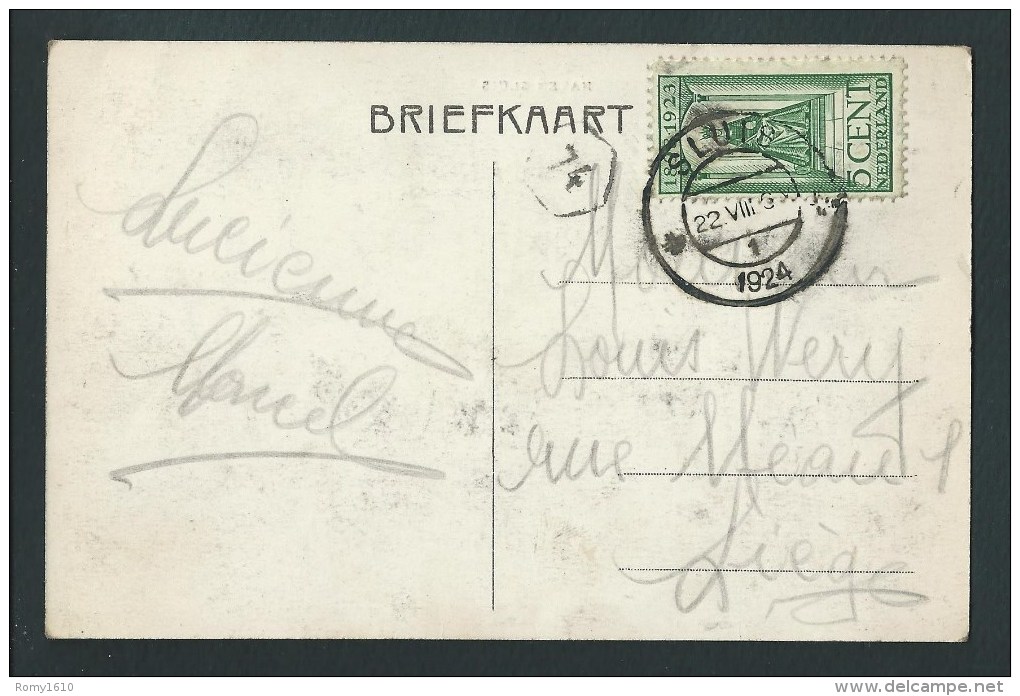 BRIEFKAART
1923
5 CENT
NEDERLAND
74
22.VIII
1
1924
Lucienne
Marcel
Monsieur
Louis Wery
rue
Liège
Romy1610
www.delcampe.net